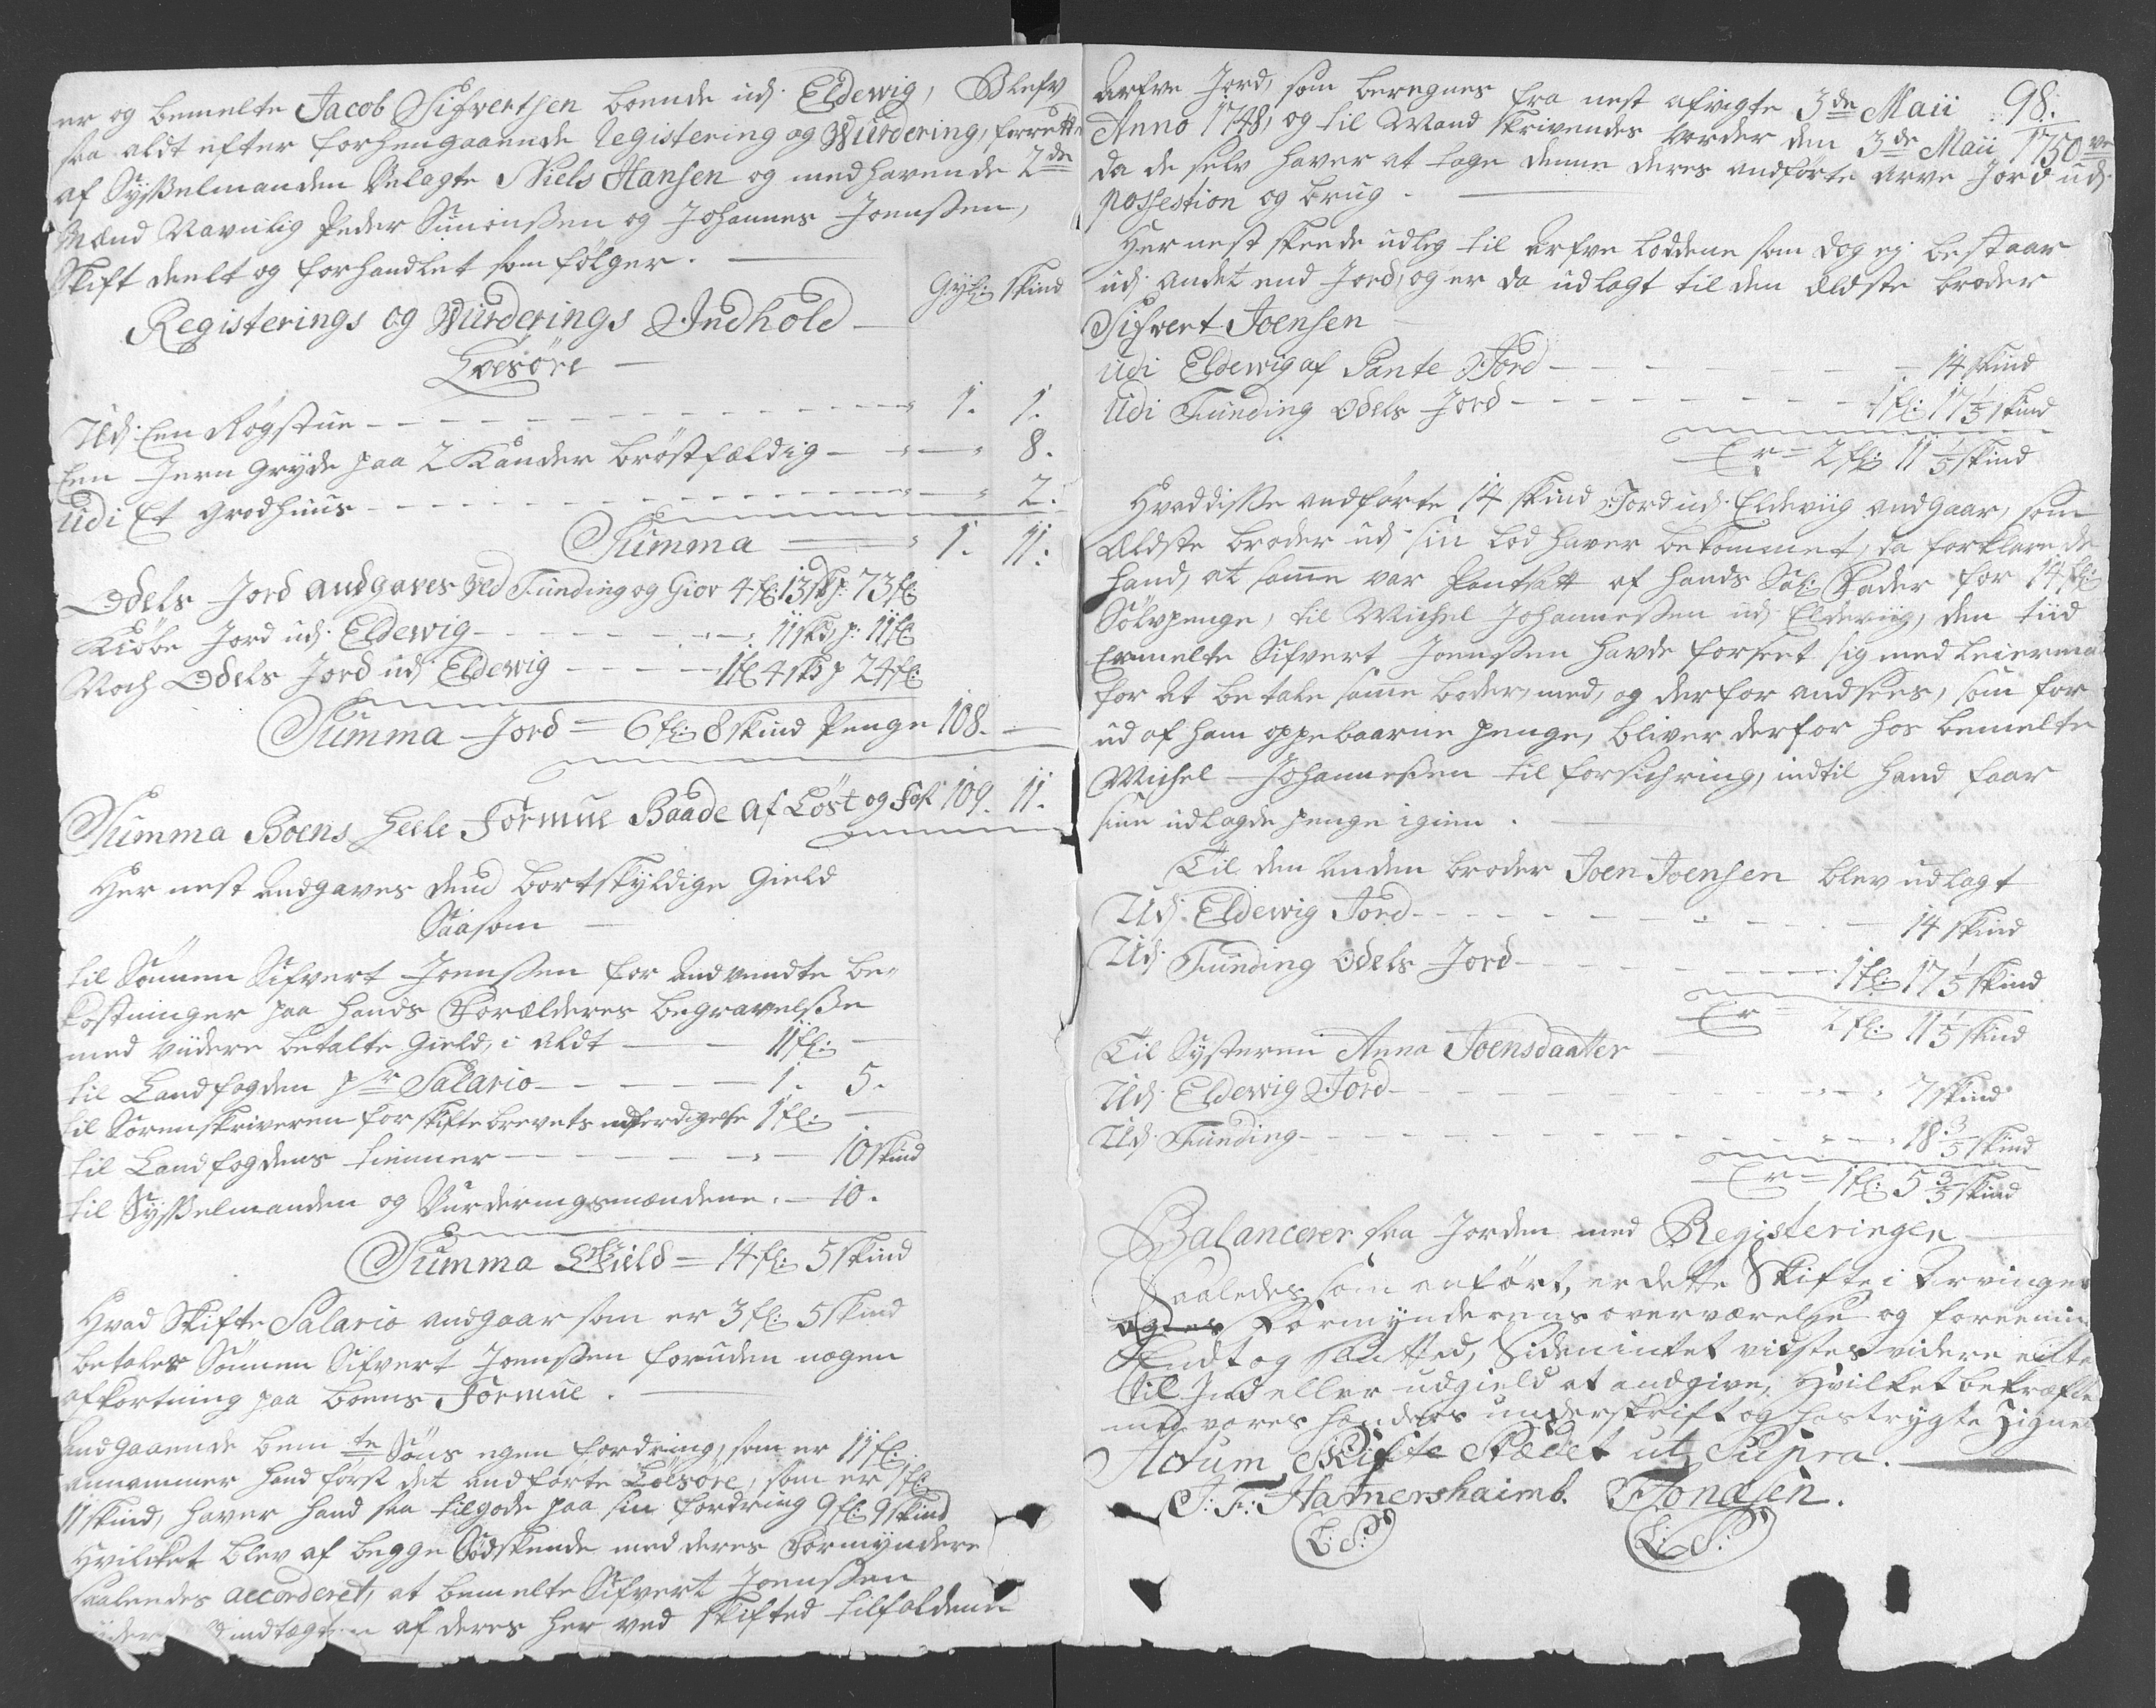 er og bemelte Jacob Sifvertsen boende udj Eldewig, Blefv
saa aldt efter forhengaaende Registering og Wurdering, forrettet
af Sysselmanden Velagte Niels Hansen og medhavende 2de
Mænd Navnlig Peder Simonssen og Johannes Joenssen,
Skift deelt og forhandlet som følger.
Gyl: Skind
Registerings og Wurderings Indhold
Loesøre
Udj Een Røgstue 1. 1.
Een Jern Gryde paa 2 Kander brøstfældig 8.
Udi Et Grødhuus 2.
Summa 1. 11.
Odels Jord andgaves ved Funding og Giov 4 fl: 13 sk p: 73 fl:
Kiøbe Jord udj Eldewig 11 skd p: 11 fl
Noch Odels Jord udj Eldewig 1 fl 4 skd p 24 fl:
Summa Jord = 6 fl: 8 Skind Penge 108.
Summa Boens Heele Formue Baade af Løst og Fast 109. 11.
Her nest andgaves dend bortskyldige Gield
Saasom
til Sønnen Sifvert Joenssen for andvendte be-
kostninger paa hands Forælderes begravelsse
med Viidere betalte Gield, i aldt 11 fl:
til Landfogden pr Salario 1. 5.
til Sorenskriveren for skiftebrevets udferdigelse 1 fl:
til Landfogdens tienner 10 skind
til Sysselmanden og Vurderingsmændene. 10.
Summa Gield = 14 fl: 5 Skind
Hvad Skifte Salario andgaar som er 3 fl: 5 skind
betaler Sønnen Sifvert Joenssen foruden nogen
afkortning paa boens Formue.
Andgaaende bemte Søns egen fordring, som er 11 fl:
annammer hand først det andførte Løesøre, som er 1 fl:
11 skind, haver hand saa tilgode paa sin fordring 9 fl: 9 skind
Hvilcket blev af begge Sødskende med deres Formyndere
saaledes accorderet, at bemelte Sifvert Joenssen
indtægten af deres her ved Skifted tilfaldene
98.
Arfve Jord, som beregnes fra nest afvigte 3de Maii
Anno 1748, og til Mand skrivendes vorder den 3de Maii 1750
da de selv haver at tage denne deres andførte arve Jord udj
possestion og brug.
Her nest skeede udleg til Arfve Loddene som dog ej bestaar
udj andet end Jord, og er da udlagt til den ældste broder
Sifvert Joensen
Udi Eldewig af Pante Jord 14 skind
Udi Funding Odels Jord 1 fl: 17 1/5 skind
Er = 2 fl: 11 1/5 skind
Hvad disse andførte 14 skind Jord udj Eldeviig andgaar, som
ældste broder udj sin lod haver bekommet, da forklarede
hand, at samme var Pantsatt af hands Sal: Fader for 14 fl:
Sølvpenge, til Michel Johannessen udj Eldeviig, den tiid
Ermelte Sifvert Joenssen havde forseet sig med Leierma
for at betale sine bøder, med, og derfor andsees, som for
ud af ham oppebaarne penge, bliver derfor hos bemelte
Michel Johannessen til forsichring, indtil hand faar
sine udlagde penge igien.
Til den anden broder Joen Joensen blev udlagt
Udj Eldewig Jord 14 skind
Udj Funding Odels Jord 1 fl: 17 1/5 skind
Er = 2 fl: 11 1/5 skind
Til Systeren Anna Joensdaatter
Udj Eldewig Jord 7 skind
Udj Funding 18 3/5 skind
Er = 1 fl: 5 3/5 skind
Balancerer saa Jorden med Registeringen
Saaledes som anført, er dette Skifte i Arvinges
Formyndernes overværelse og foreening
Endt og sluttet, Siden intet vidstes videre enten
til Ind eller udgield at andgive, Hvilket bekræfte
med vores hænders underskrift og hostrygte Zigneter
Actum Skifte Stædet ut Supra.
J: F: Hamershaimb. F Jonasen.
L: S: L: S: